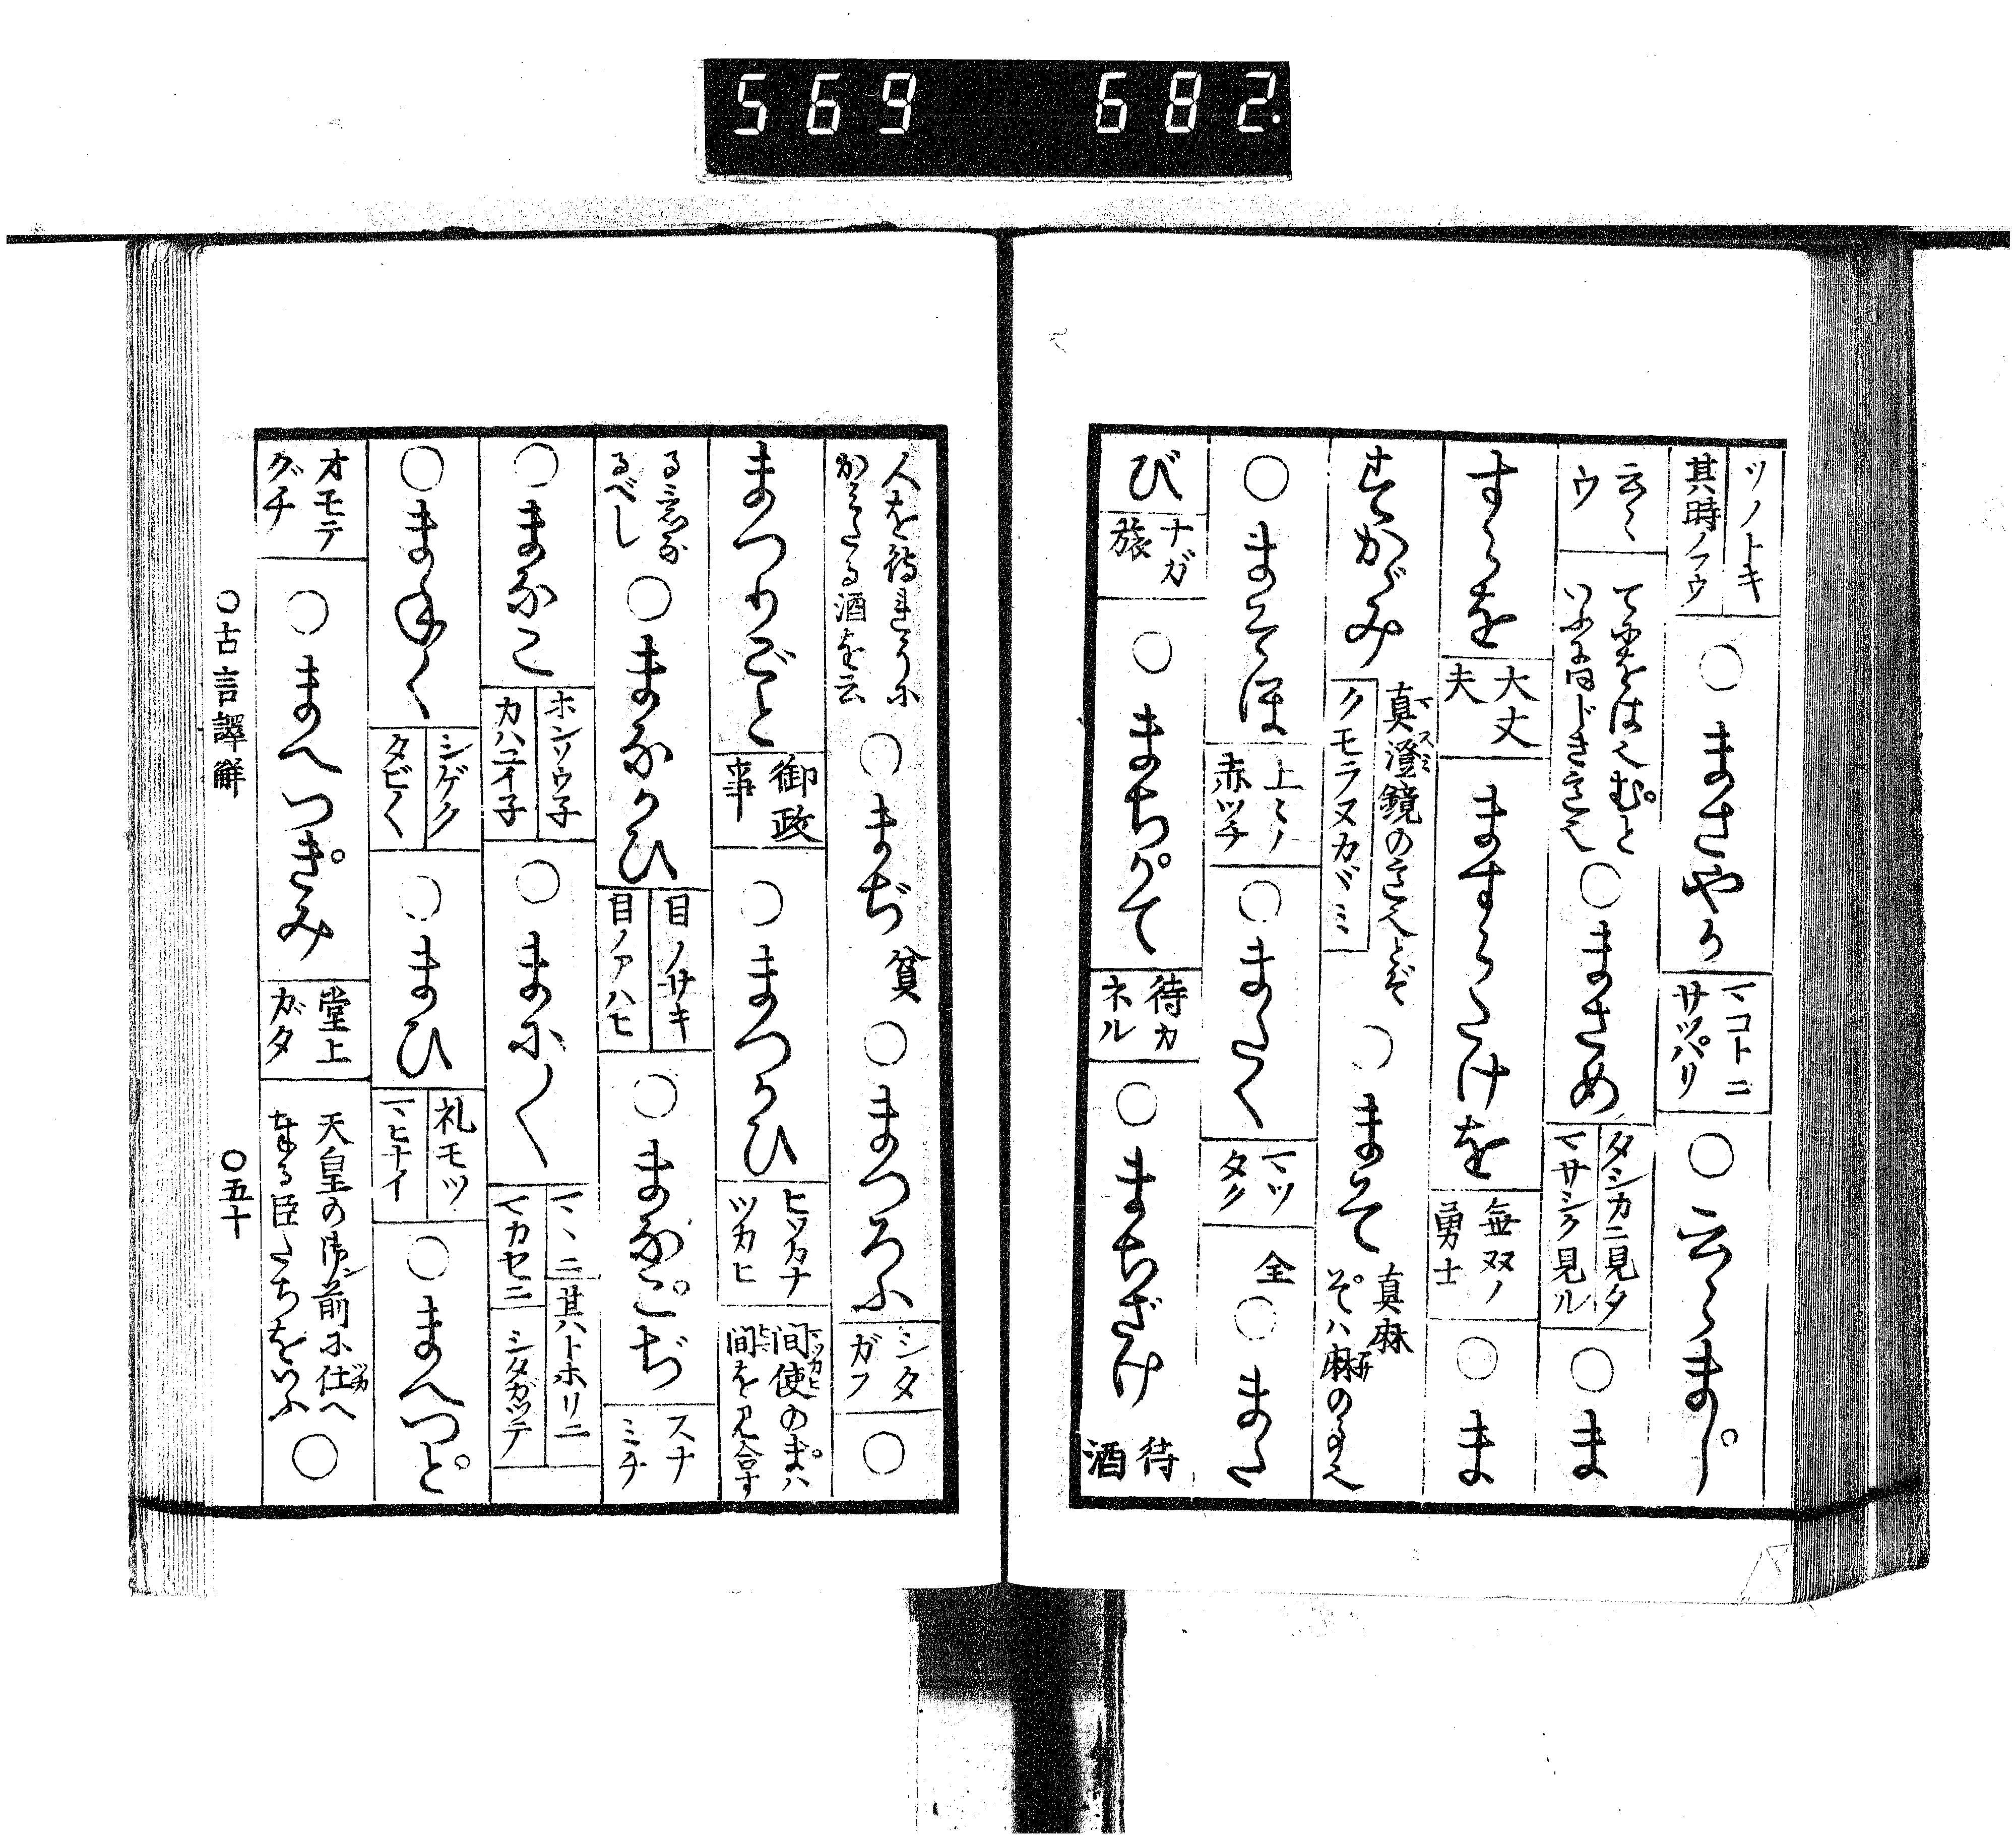 569 682.
ツノトキ 其時ノフウ ○まさやか マコトニ サツパリ ○云〻まし
云〻 ウ てふをはえむと いふに同じき意也 ○まさめ タシカニ見タ マサシク見ル ○ま
すらを 大丈夫 ますらたけを 無双ノ勇士 ○ま
すかゞみ 真澄鏡の意也とぞ クモラヌカヾミ ○まそ 真麻 そハ麻の事也
○まそほ 上〻ノ赤ツチ ○またく マツタク 全 ○また
び ナガ旅 ○まちかて 待カネル ○まちざけ 待酒
人を待まうけに かみたる酒を云 ○まぢ 貧 ○まつろふ シタガフ ○
まつりごと 御政事 ○まつかひ ヒソカナツカヒ 間使のまハ 間を見合す
る意なるべし ○まなかひ 目ノサキ 目ノアハヒ ○まなごぢ スナミチ
○まなこ ホンソウ子 カハユイ子 ○まにく マヽニ マカセニ 其ハトホリニ シタガツテ
○まねく シゲク タビ〱 ○まひ 礼モツ マヒナイ ○まへつと
オモテグチ ○まへつぎみ 堂上ガタ 天皇の御前に仕へ 奉る臣たちをいふ ○
○古言譯解 ○五十